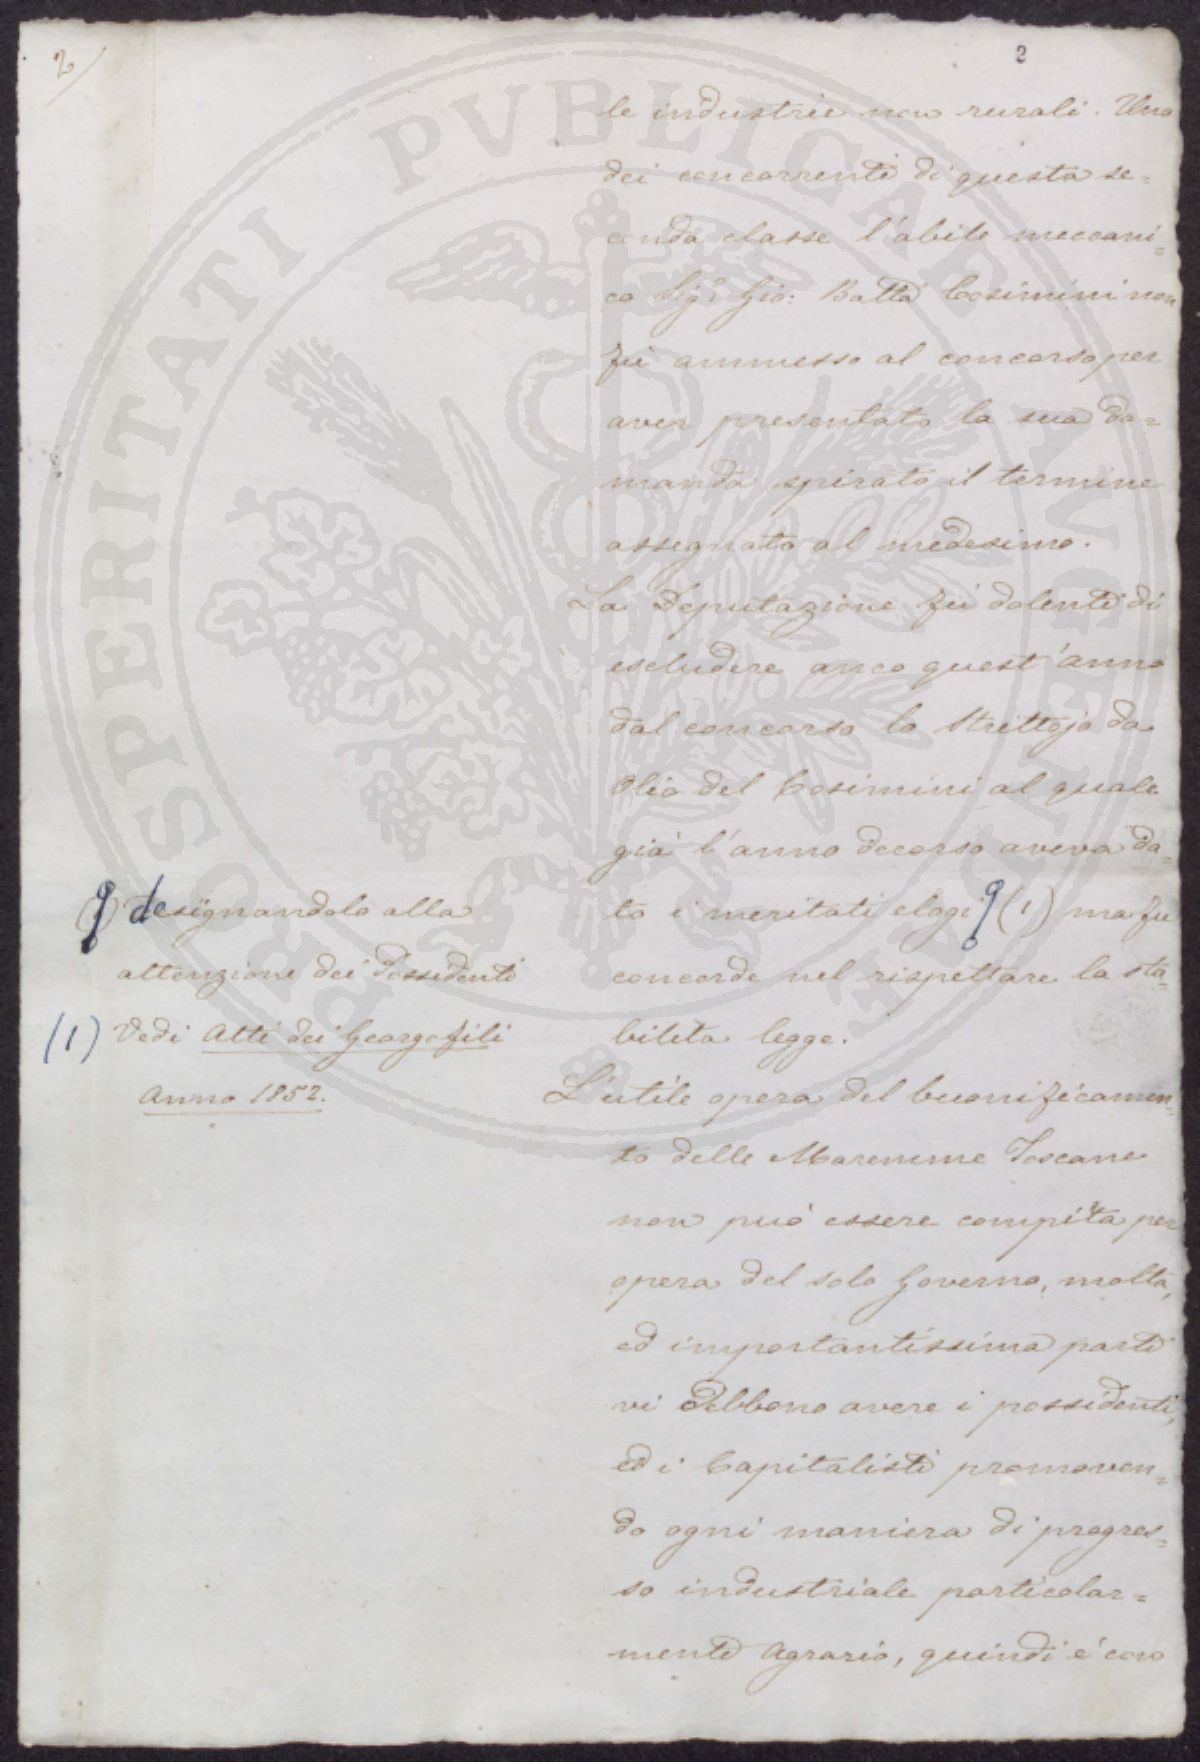 2
2
le industrie non rurali. Uno
dei concorrenti di questa se=
conda classe l'abile meccani=
co Sigr. Gio: Batta Cosimini non
fù ammesso al concorso per
aver presentato la sua do=
manda spirato il termine
assegnato al medesimo.
La Deputazione fù dolente di
escludere anco quest'anno
dal concorso lo Strettojo da
Olio del Cosimini al quale
già l'anno decorso aveva da=
to i meritati elogi (1) ma fu
concorde nel rispettare la sta=
bilita legge.
L'utile opera del buonificamen=
to delle Maremme Toscane
non può essere compita per
opera del solo Governo, molta,
ed importantissima parte
vi debbono avere i possidenti,
ed i Capitalisti promoven=
do ogni maniera di progres=
so industriale particolar=
mente Agrario, quindi è con
designandolo alla
attenzione dei Possidenti
(1) Vedi Atti dei Georgofili
Anno 1852.
PROSPERITATI PVBLICAE AVGENDAE